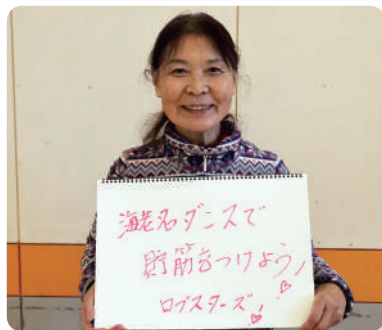 海老名ダンスで
貯筋をつけよう!♡
ロブスターズ!♡